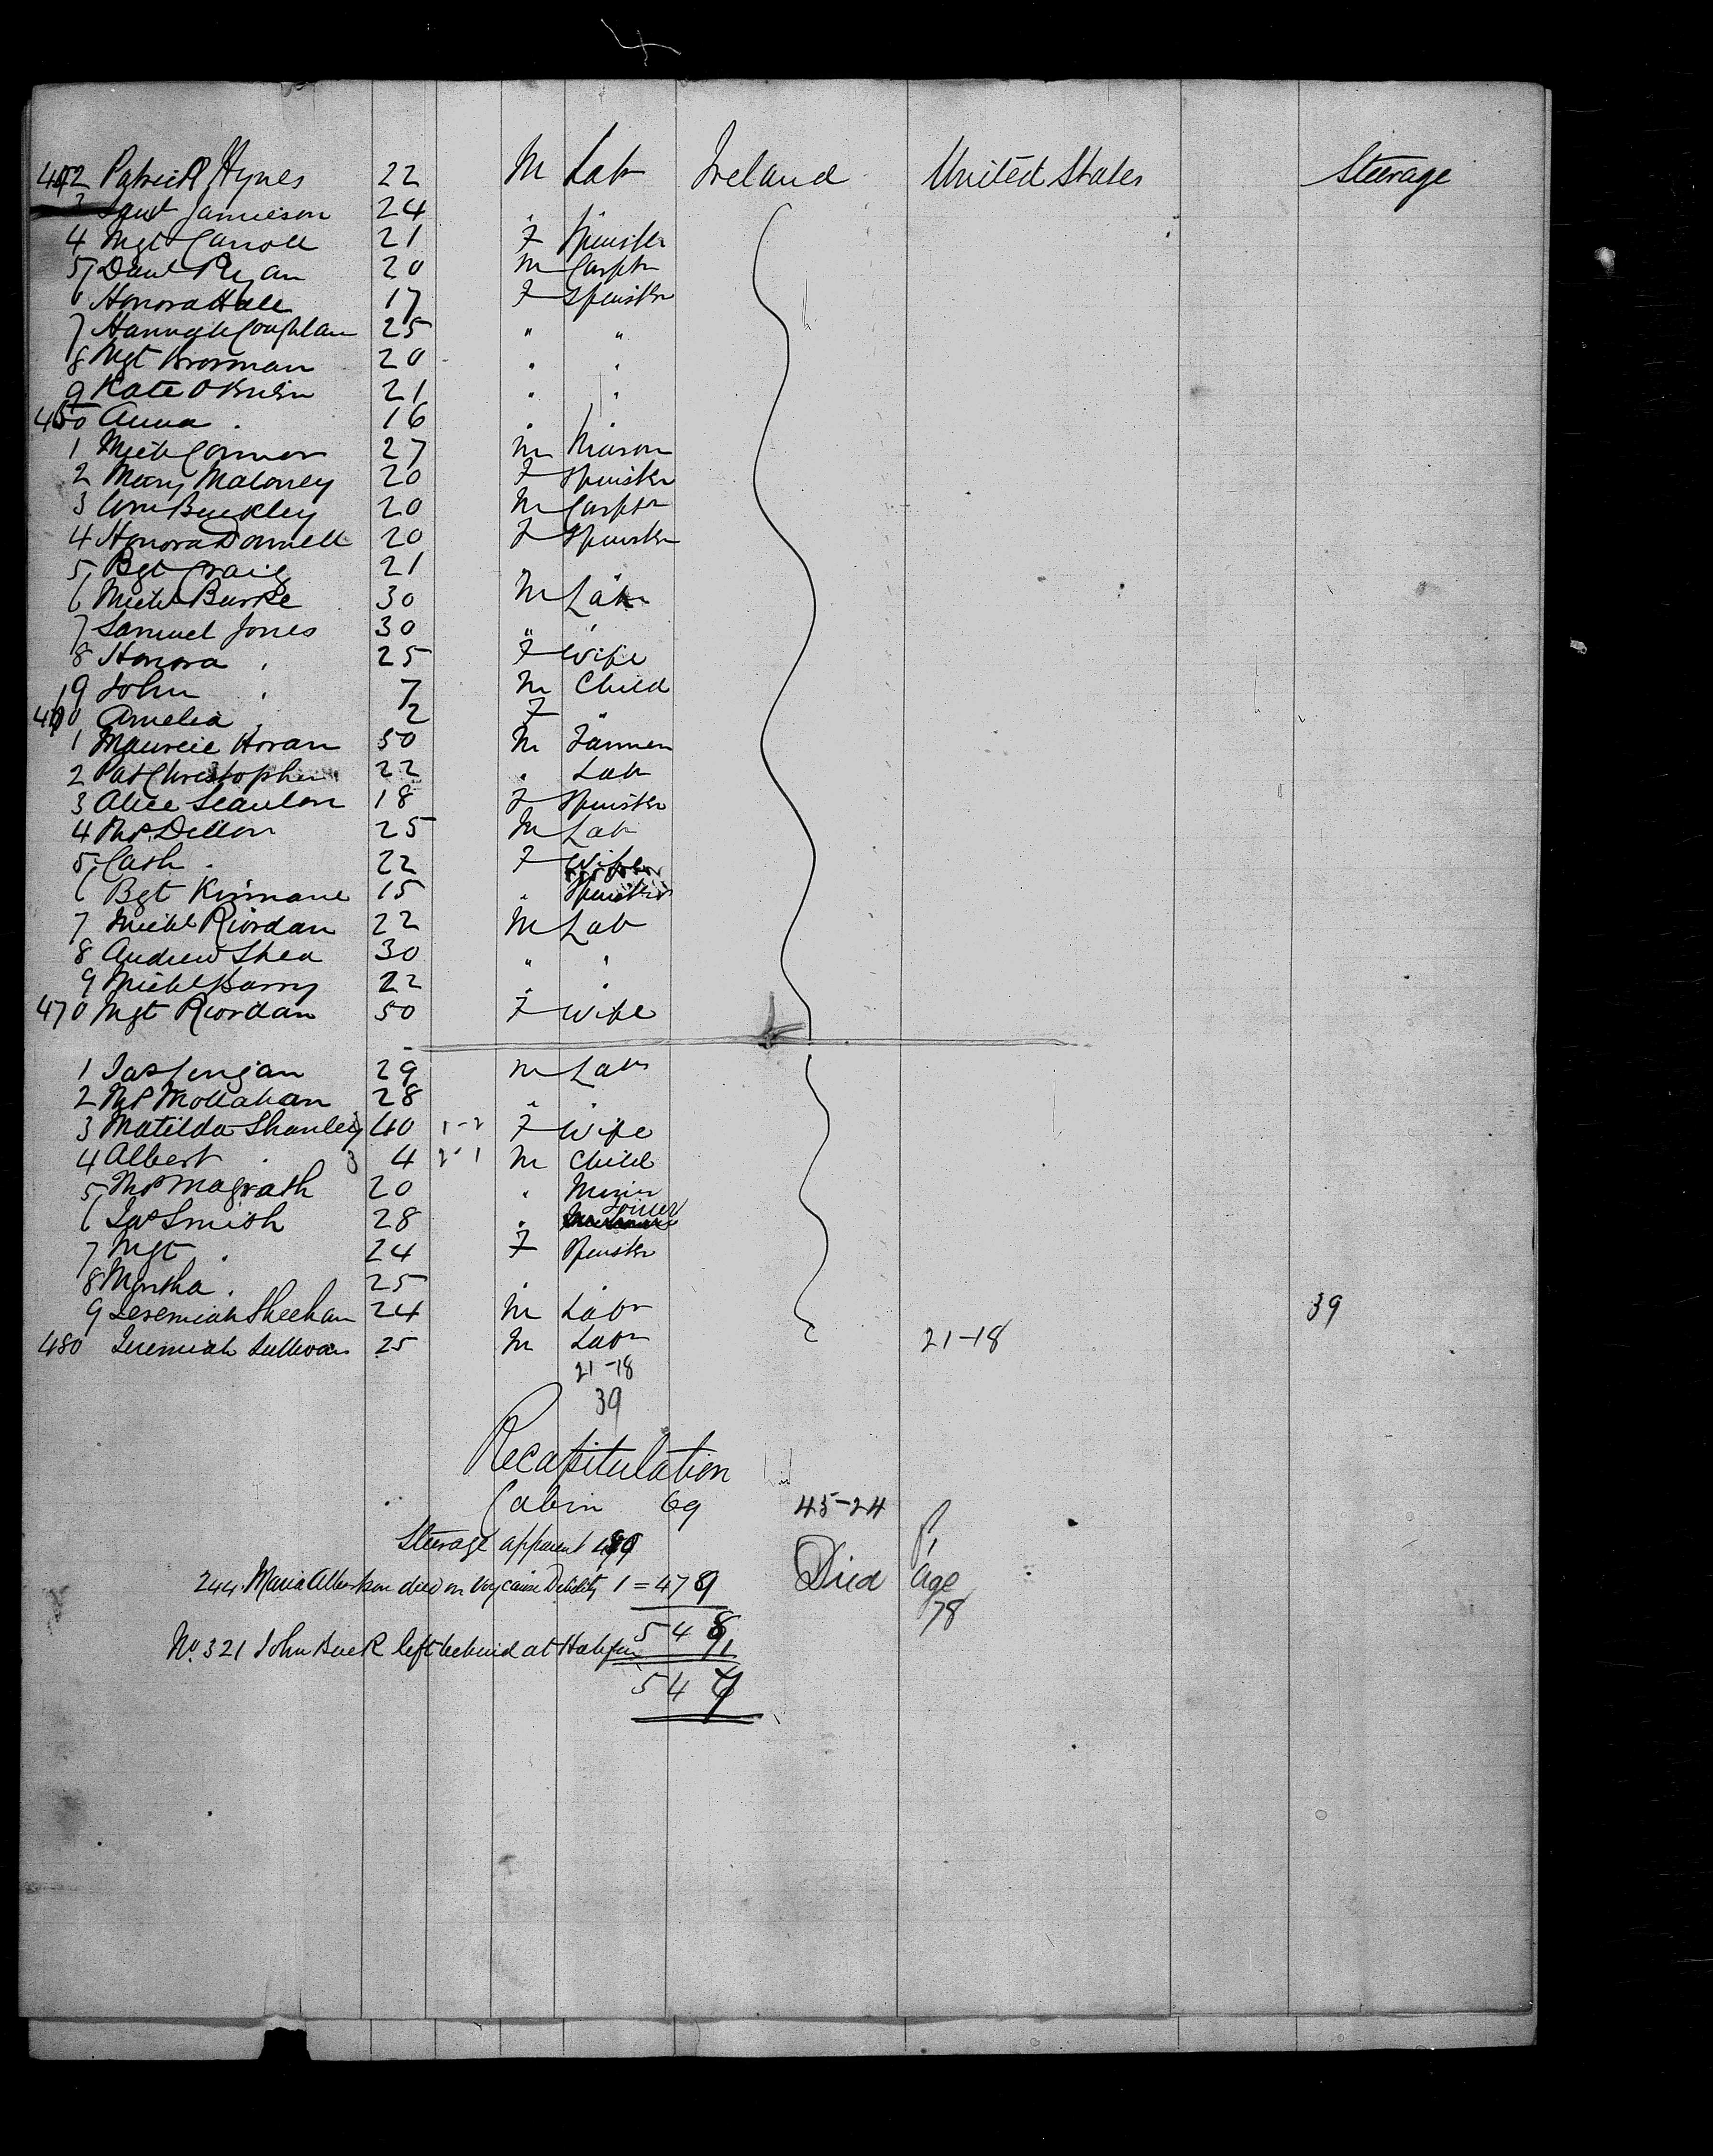 442 Patrick Hynes 22 M Labr Ireland United States Steerage
3 Saml Jamieson 24 "
4 Mgt Carroll 21 F Spinster
5 Danl Ryan 20 M Carptr
6 Honora Hall 17 F Spinster
7 Hannah Coughlan 25 " "
8 Mgt Brosnan 20 " "
9 Kate O'Brien 21 " "
450 Anna " 16 " "
1 Michl Connor 27 M Mason
2 Mary Maloney 20 F Spinster
3 Wm Buckley 20 M Carptr
4 Honora Donnell 20 F Spinster
5 Bgt Craig 21 " "
6 Michl Burke 30 M Labr
7 Samuel Jones 30 " "
8 Honora " 25 F Wife
9 John " 7 M Child
460 Amelia " 2 F "
1 Maurice Horan 50 M Farmer
2 Pat Christopher 22 " Labr
3 Alice Scanlon 18 F Spinster
4 Ths Dillon 25 M Labr
5 Cath " 22 F Wife
6 Bgt Kinnane 15 " Spinster
7 Michl Riordan 22 M Labr
8 Andrew Shea 30 " "
9 Michl Barry 22 " "
470 Mgt Riordan 50 F Wife
1 Jas Lengan 29 M Labr
2 Ths Mollahan 28 " "
3 Matilda Shanley 40 1-2 F Wife
4 Albert " 3 4 2-1 M Child
5 Ths Magrath 20 " Miner
6 Jas Smith 28 " Joiner
7 Mgt " 24 F Spinster
8 Martha " 25 " "
9 Jeremiah Sheehan 24 M Labr 39
480 Jeremiah Sullivan 25 M Labr 21-18
21-18
39
Recapitulation
Cabin 69 45-24
Steerage apparent 480
244 Maria Albertson died on Voy cause Debility 1 = 479 Died Age 78
548
No. 321 John Buck left behind at Halifax 1
547